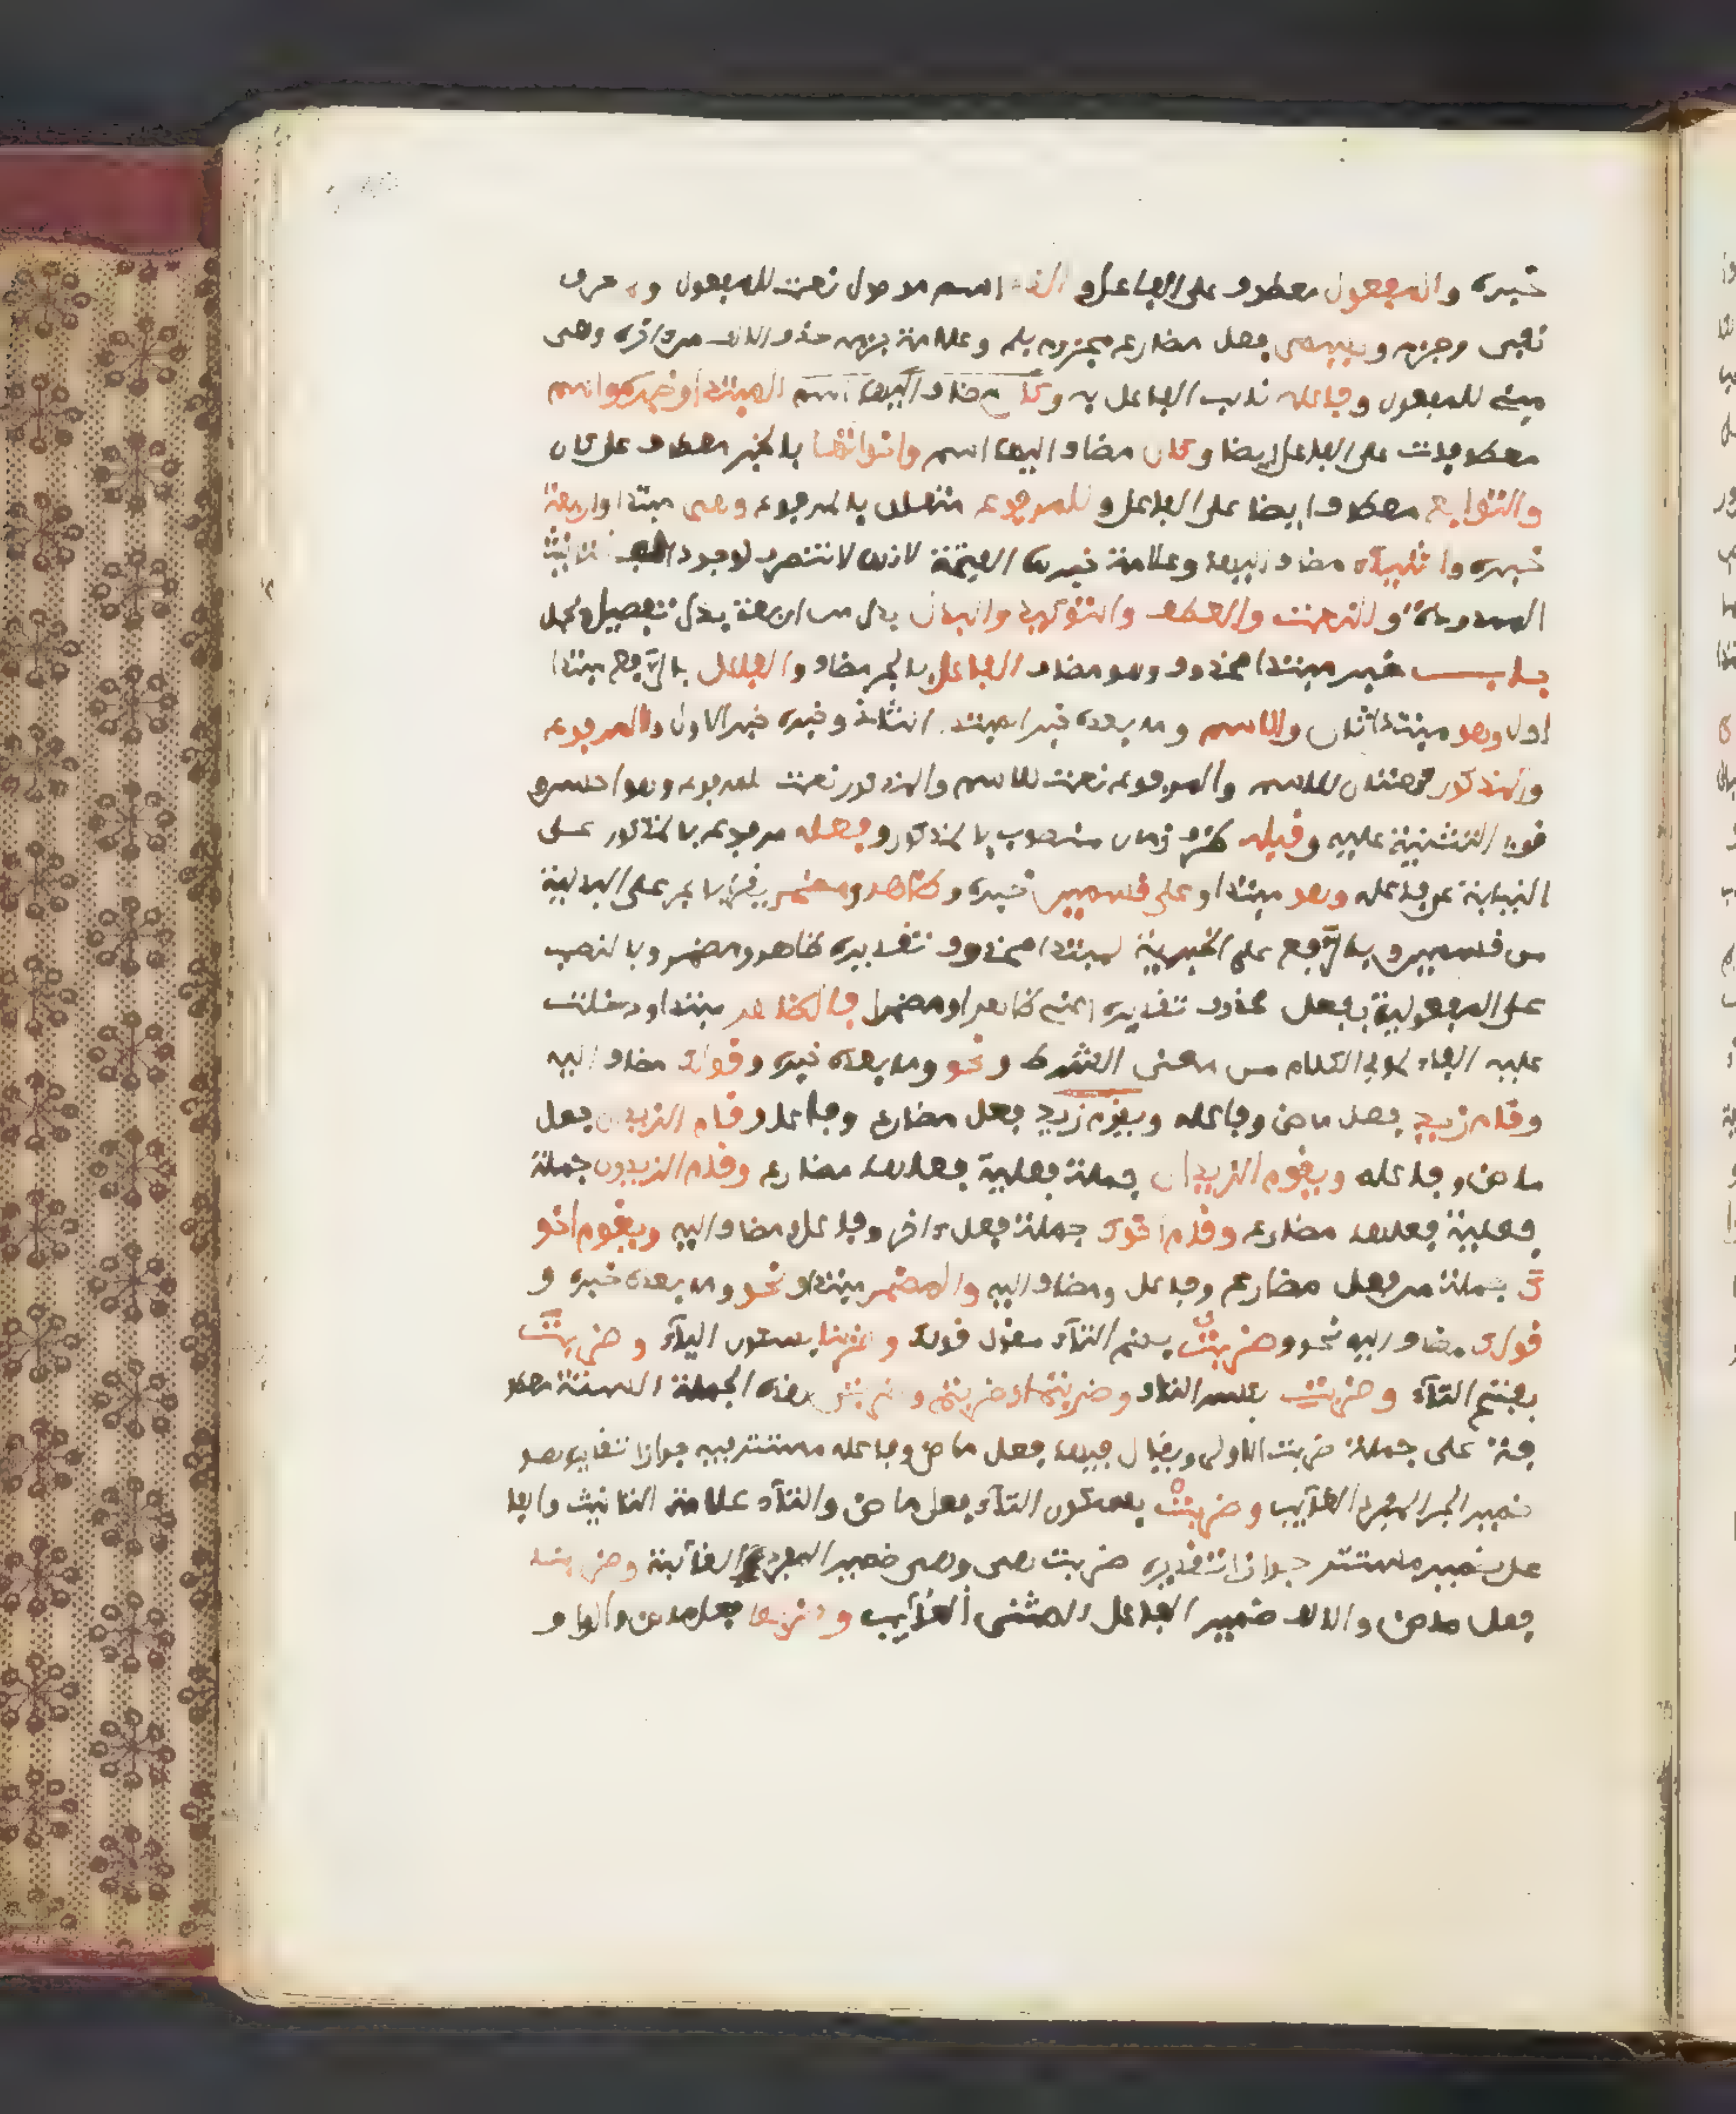 خبره والمفعول معطوف على الفاعل و الذي اسم موصول نعت للمفعول و لم حرف
نفي وجزم و يسمى فعل مضارع مجزوم بلم وعلامة جزمه حذف الالف من اخره وهي
مبني للمفعول وفاعله نايب الفاعل به و كان مضاف اليها اسم المبتدا وخبره واسم
معطوفات على الفاعل ايضا و كان مضاف اليها اسم واخواتها بالجر معطوف على كان
والتوابع معطوف ايضا على الفاعل و للمرفوع متعلق بالمرفوع وهي مبتدا واربعة
خبره وا شياء مضاف اليها وعلامة خبرها الفتحة لانها لا تنصرف لوجود الف التانيث
الممدودة و النعت والعطف والتوكيد والبدل بدل من اربعة بدل تفصيل وكل
باب خبر مبتدا محذوف وهو مضاف الفاعل بالجر مضاف و الفاعل بالرفع مبتدا
اول وهو مبتدا ثان والاسم وما بعده خبر المبتدا الثاني وخبره خبر الاول و المرفوع
والمذكور نعتان للاسم والمرفوع نعت للاسم والمذكور نعت للمرفوع وهو احسن
قوة التثنية عليه و قبله ظرف زمان منصوب بالمذكور و فعله مرفوع بالمذكور على
النيابة عن فاعله وهو مبتدا و على قسمين خبره و ظاهر ومضمر يقرا بالجر على البدلية
من قسمين و بالرفع على الخبرية لمبتدا محذوف تقديره ظاهر ومضمر وبالنصب
على المفعولية بفعل محذوف تقديره اعني ظاهرا ومضمرا فالظاهر مبتدا ودخلت
عليه الفاء لما في الكلام من معنى الشرط و نحو وما بعده خبره و قولك مضاف اليه
وقام زيد فعل ماض وفاعله ويقوم زيد فعل مضارع وفاعل و قام الزيدان فعل
ماض وفاعله ويقوم الزيدان جملة فعلية فعلها مضارع وقام الزيدون جملة
فعلية فعلها مضارع وقام اخوك جملة فعل اخر وفاعل ومضاف اليه ويقوم اخو
ك جملة من فعل مضارع وفاعل ومضاف اليه والمضمر مبتدا و نحو وما بعده خبره و
قولك مضاف اليه نحو و ضربت بضم التاء مقول قولك و ضربنا بسكون الباء و ضربت
بفتح التاء و ضربت بكسر التاء و ضربتما وضربتم و ضربتن هذه الجملة الستة معطو
فة على جملة ضربت الاولى ويقال فيها فعل ماض وفاعله مستتر فيه جوازا تقديره هو
ضمير المفرد الغايب و ضربت بسكون التاء فعل ماض والتاء علامة التانيث والفا
عل ضمير مستتر جوازا تقديره ضربت هي وهي ضمير المفردة الغائبة وضربا
فعل ماض والالف ضمير الفاعل المثنى الغايب و ضربوا فعل ماض والواو